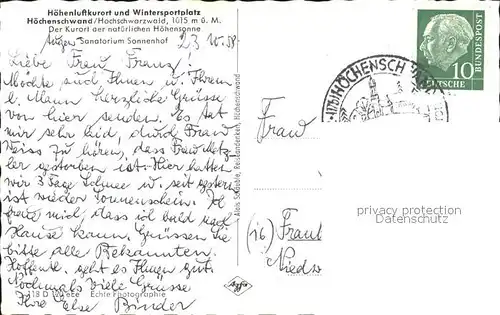 Höhenluftkurort und Wintersportplatz
Höchenschwand/Hochschwarzwald, 1015 m ü. M.
Der Kurort der natürlichen Höhensonne
Sanatorium Sonnenhof
Liebe Frau Franz!
Möchte auch Ihnen u. Ihrem
l. Mann herzliche Grüsse
von hier senden. Es tat
mir sehr leid, durch Frau
Weiss zu hören, dass Frau Metz-
ler gestorben ist. Hier hatten
wir 3 Tage Schnee u. seit gestern
ist wieder Sonnenschein. Ich
freue mich, dass ich bald nach
Hause kann. Grüssen Sie
bitte alle Bekannten.
Hoffentl. geht es Ihnen gut.
Nochmals viele Grüsse
Ihre Else Binder
118 D Echte Photographie
Höchenschwand
Agfa
HÖCHENSCH
10
DEUTSCHE
BUNDESPOST
Frau
privacy protection
Datenschutz
(16) Frank
Niedw